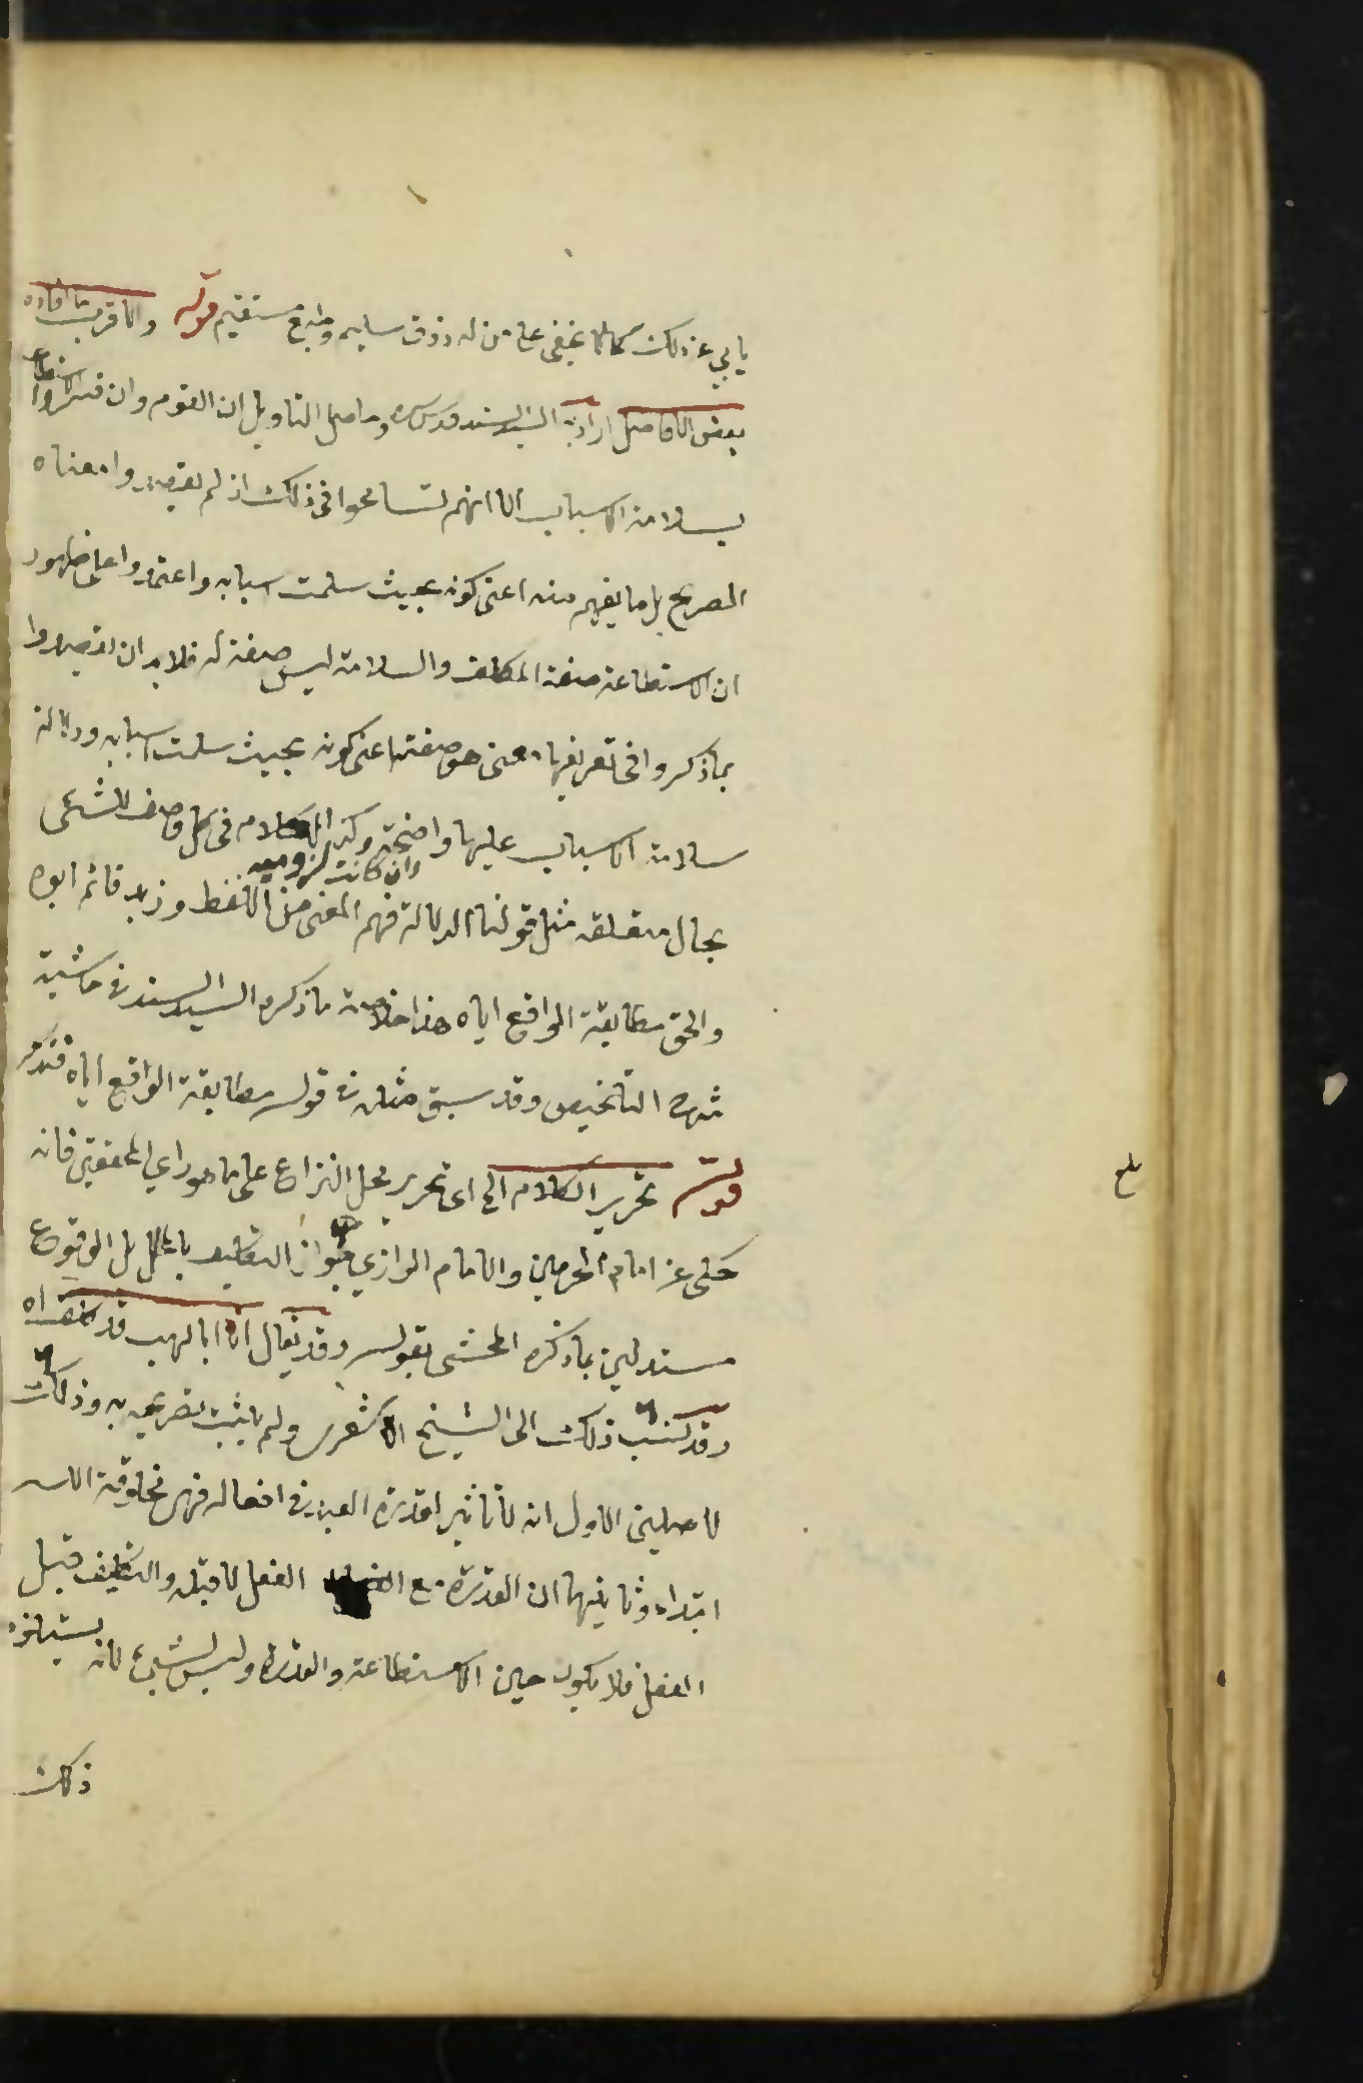 يابي عن ذلك كما لا يخفى على من له ذوق سليم وطبع مستقيم قوله والاقرب ما افاده
بعض الافاضل اراد به السيد السند قدس سره وحاصل التاويل ان القوم وان فسروا الاستطاعة
بسلامة الاسباب الا انهم تسامحوا في ذلك اذ لم يقصدوا معناه
الصريح بل ما يفهم منه اعني كونه بحيث سلمت اسبابه واعتمدوا على ظهور
ان الاستطاعة صفة المكلف والسلامة ليس صفة له فلا بد ان يقصدوا
بما ذكروا في تعريفها معنى هو صفته اعني كونه بحيث سلمت اسبابه ودلالة
سلامة الاسباب عليها واضحة وكذا الكلام في كل وصف للشئ
وان كانت لزومية
بحال متعلقه مثل قولنا الدلالة فهم المعنى من اللفظ وزيد قائم ابوه
والحق مطابقة الواقع اياه هذا خلاصة ما ذكره السيد السند في حاشية
شرح التلخيص وقد سبق مثله في قوله مطابقة الواقع اياه فتذكر
قوله تحرير الكلام الخ اى تحرير محل النزاع على ما هو راي المحققين فانه
حكى عن امام الحرمين والامام الرازي جواز التكليف بالمحال بل الوقوع
مستدلين بما ذكره المحشى بقوله وقد يقال ان ابا لهب قد
وقد ينسب ذلك الى الشيخ الاشعرى ولم يثبت تصريحه به وذلك
لاصلين الاول ان لا تاثير لقدرة العبد في افعاله فهي مخلوقة لله
ابتداء وثانيهما ان القدرة مع الفعل لا قبله والتكليف قبل
الفعل فلا يكون حين الاستطاعة والقدرة وليس بشئ لانه يستلزم
ذلك
بلغ